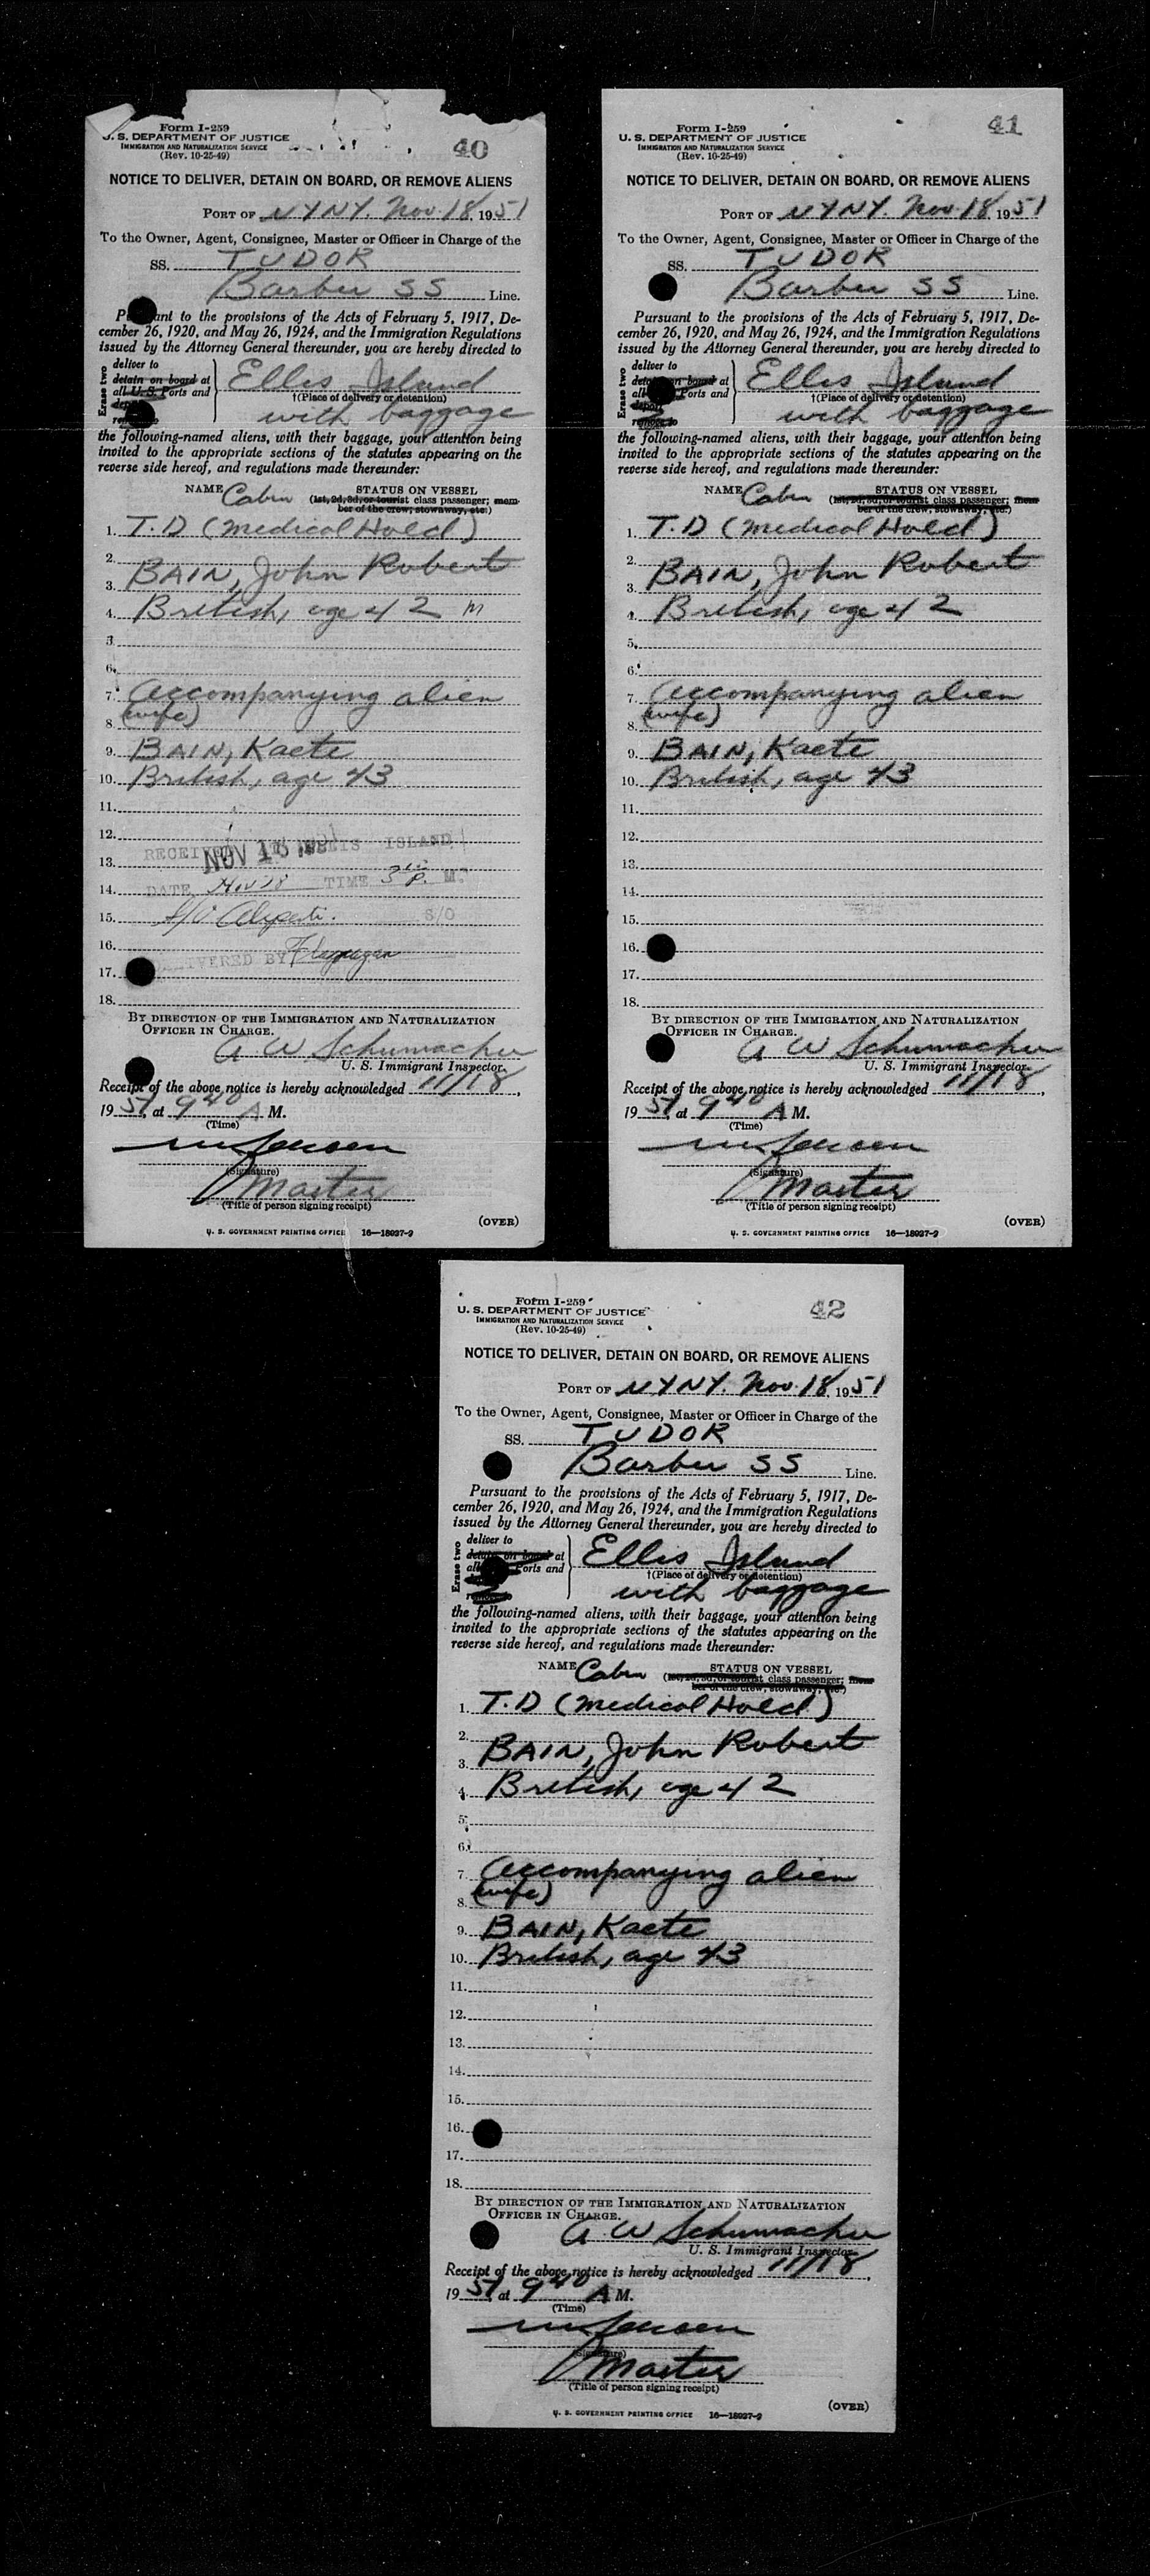 Form I-259
U. S. DEPARTMENT OF JUSTICE
IMMIGRATION AND NATURALIZATION SERVICE
(Rev. 10-25-49)
40
NOTICE TO DELIVER, DETAIN ON BOARD, OR REMOVE ALIENS
PORT OF NYNY. Nov. 18, 1951
To the Owner, Agent, Consignee, Master or Officer in Charge of the
SS. TUDOR
Barber SS Line.
Pursuant to the provisions of the Acts of February 5, 1917, De-
cember 26, 1920, and May 26, 1924, and the Immigration Regulations
issued by the Attorney General thereunder, you are hereby directed to
Erase two
deliver to
detain on board at
all U. S. Ports and
Ellis Island
†(Place of delivery or detention)
with baggage
the following-named aliens, with their baggage, your attention being
invited to the appropriate sections of the statutes appearing on the
reverse side hereof, and regulations made thereunder:
NAME Cabin STATUS ON VESSEL
(1st, 2d, 3d, or tourist class passenger; mem-
ber of the crew, stowaway, etc.)
1. T.D (Medical Hold)
2.
3. BAIN, John Robert
4. British, age 42 M
5.
6.
7. Accompanying alien
8. (wife)
9. BAIN, Kaete
10. British, age 43
11.
12.
RECEIVED ELLIS ISLAND
NOV 18
13.
14. DATE Nov 18 TIME 3 P. M.
15. S/O
16.
DELIVERED BY Flanagan
17.
18.
BY DIRECTION OF THE IMMIGRATION AND NATURALIZATION
OFFICER IN CHARGE.
A W Schumacher
U. S. Immigrant Inspector.
Receipt of the above notice is hereby acknowledged 11/18,
1951, at 9 40 A M.
(Time)
(Signature)
Master
(Title of person signing receipt)
(OVER)
U. S. GOVERNMENT PRINTING OFFICE 16—18027-2
Form I-259
U. S. DEPARTMENT OF JUSTICE
IMMIGRATION AND NATURALIZATION SERVICE
(Rev. 10-25-49)
41
NOTICE TO DELIVER, DETAIN ON BOARD, OR REMOVE ALIENS
PORT OF NYNY. Nov. 18, 1951
To the Owner, Agent, Consignee, Master or Officer in Charge of the
SS. TUDOR
Barber SS Line.
Pursuant to the provisions of the Acts of February 5, 1917, De-
cember 26, 1920, and May 26, 1924, and the Immigration Regulations
issued by the Attorney General thereunder, you are hereby directed to
Erase two
deliver to
detain on board at
all Ports and
deport
remove to
Ellis Island
†(Place of delivery or detention)
with baggage
the following-named aliens, with their baggage, your attention being
invited to the appropriate sections of the statutes appearing on the
reverse side hereof, and regulations made thereunder:
NAME Cabin STATUS ON VESSEL
(1st, 2d, 3d, or tourist class passenger; mem-
ber of the crew, stowaway, etc.)
1. T.D (Medical Hold)
2.
3. BAIN, John Robert
4. British, age 42
5.
6.
7. Accompanying alien
8. (wife)
9. BAIN, Kaete
10. British, age 43
11.
12.
13.
14.
15.
16.
17.
18.
BY DIRECTION OF THE IMMIGRATION AND NATURALIZATION
OFFICER IN CHARGE.
A W Schumacher
U. S. Immigrant Inspector.
Receipt of the above notice is hereby acknowledged 11/18,
1951, at 9 40 A M.
(Time)
(Signature)
Master
(Title of person signing receipt)
(OVER)
U. S. GOVERNMENT PRINTING OFFICE 16—18027-2
Form I-259
U. S. DEPARTMENT OF JUSTICE
IMMIGRATION AND NATURALIZATION SERVICE
(Rev. 10-25-49)
42
NOTICE TO DELIVER, DETAIN ON BOARD, OR REMOVE ALIENS
PORT OF NYNY. Nov. 18, 1951
To the Owner, Agent, Consignee, Master or Officer in Charge of the
SS. TUDOR
Barber SS Line.
Pursuant to the provisions of the Acts of February 5, 1917, De-
cember 26, 1920, and May 26, 1924, and the Immigration Regulations
issued by the Attorney General thereunder, you are hereby directed to
Erase two
deliver to
detain on board at
all Ports and
Ellis Island
†(Place of delivery or detention)
with baggage
the following-named aliens, with their baggage, your attention being
invited to the appropriate sections of the statutes appearing on the
reverse side hereof, and regulations made thereunder:
NAME Cabin STATUS ON VESSEL
(1st, 2d, 3d, or tourist class passenger; mem-
ber of the crew, stowaway, etc.)
1. T.D (Medical Hold)
2.
3. BAIN, John Robert
4. British, age 42
5.
6.
7. Accompanying alien
8. (wife)
9. BAIN, Kaete
10. British, age 43
11.
12.
13.
14.
15.
16.
17.
18.
BY DIRECTION OF THE IMMIGRATION AND NATURALIZATION
OFFICER IN CHARGE.
A W Schumacher
U. S. Immigrant Inspector.
Receipt of the above notice is hereby acknowledged 11/18,
1951, at 9 40 A M.
(Time)
(Signature)
Master
(Title of person signing receipt)
(OVER)
U. S. GOVERNMENT PRINTING OFFICE 16—18027-2